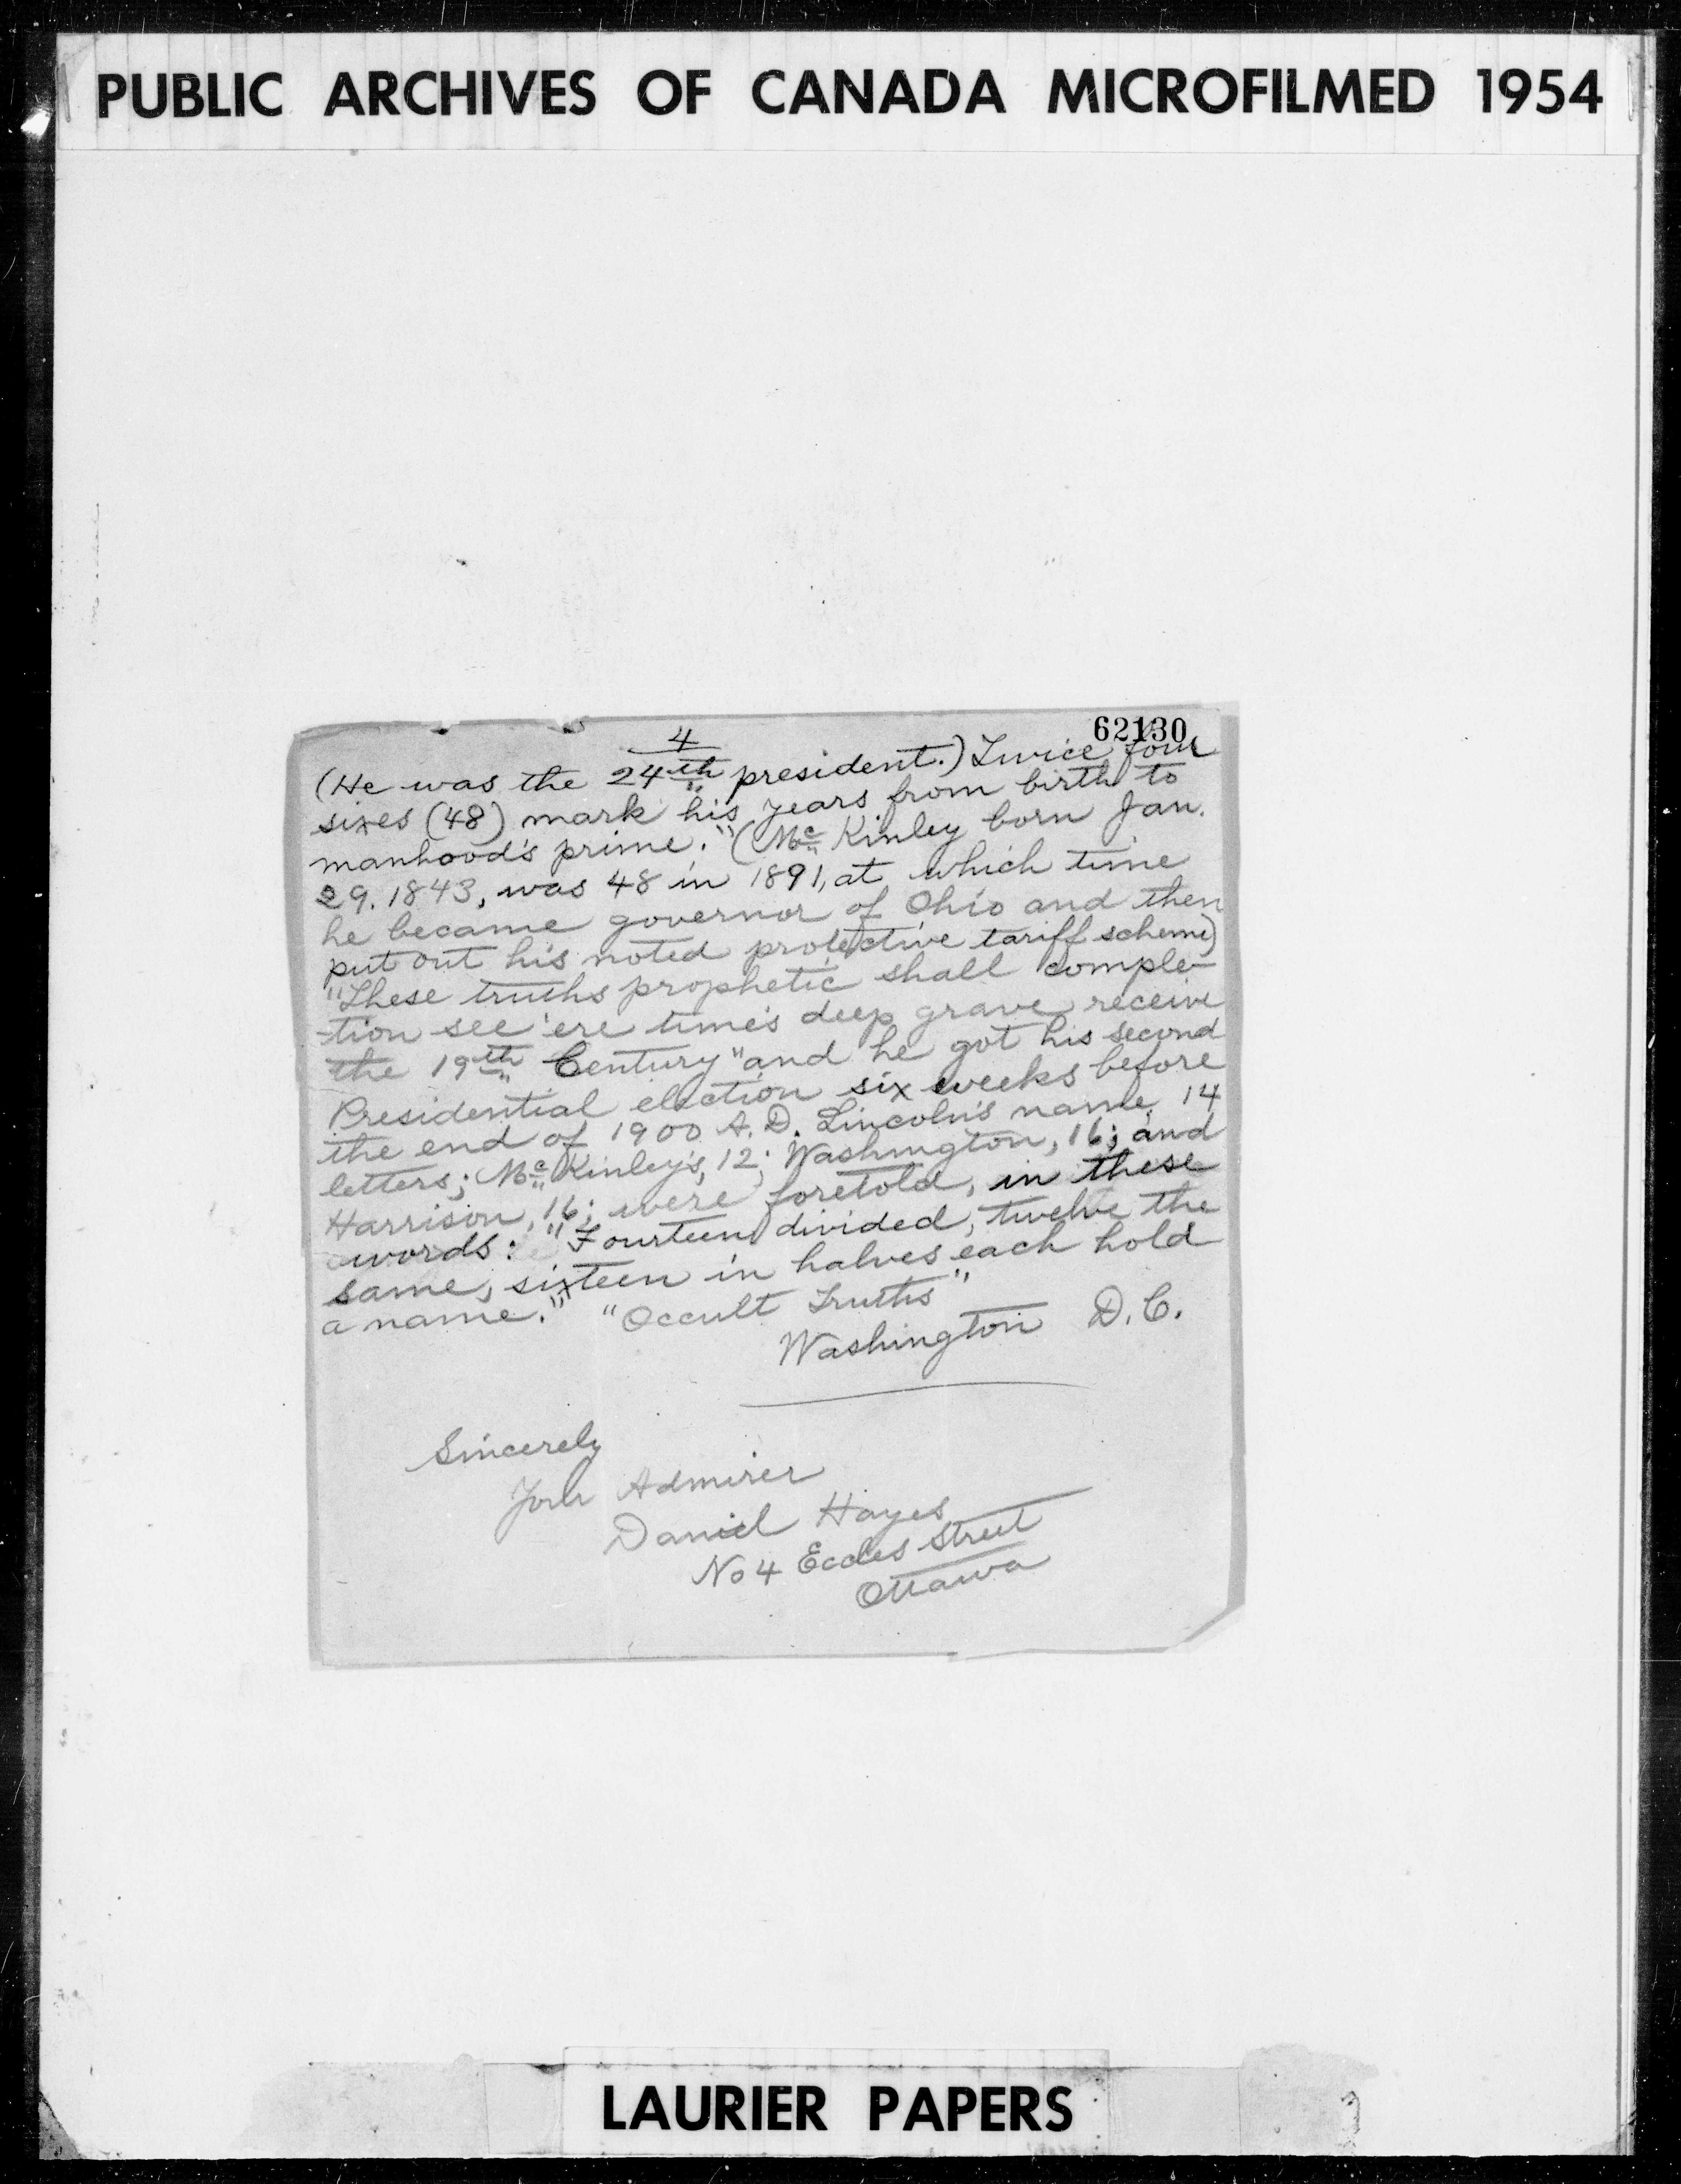 PUBLIC ARCHIVES OF CANADA MICROFILMED 1954
62130
4
(He was the 24th president.) Twice four
sixes (48) mark his years from birth to
manhood's prime." (Mc Kinley born Jan.
29. 1843, was 48 in 1891, at which time
he became governor of Ohio and then
put out his noted protective tariff scheme)
"These truths prophetic shall comple-
-tion see 'ere time's deep grave receive
the 19th Century" and he got his second
Presidential election six weeks before
the end of 1900 A.D. Lincoln's name, 14
letters; Mc Kinley's, 12; Washington, 16; and
Harrison, 16; were foretold, in these
words: "Fourteen divided, twelve the
same, sixteen in halves each hold
a name." "Occult Truths"
Washington D.C.
Sincerely
Your Admirer
Daniel Hayes
No 4 Eccles Street
Ottawa
LAURIER PAPERS